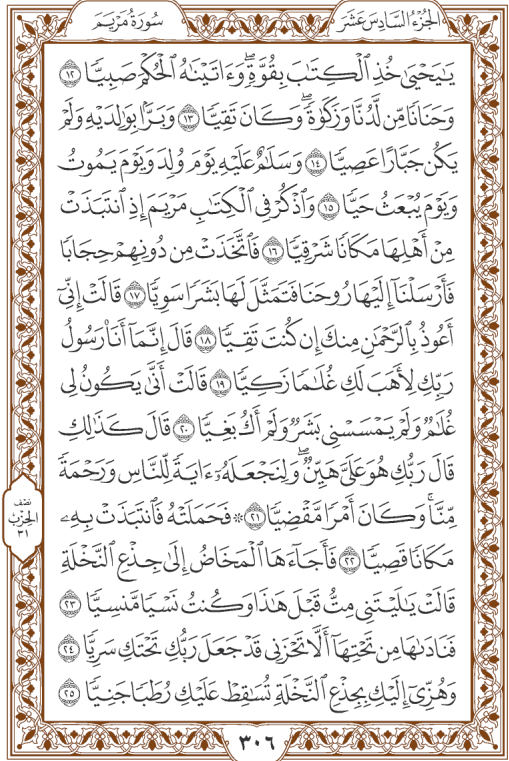 الجُزْءُ السَّادِسَ عَشَرَ
سُورَةُ مَرْيَمَ
يَٰيَحْيَىٰ خُذِ ٱلْكِتَٰبَ بِقُوَّةٖۖ وَءَاتَيْنَٰهُ ٱلْحُكْمَ صَبِيّٗا ١٢
وَحَنَانٗا مِّن لَّدُنَّا وَزَكَوٰةٗۖ وَكَانَ تَقِيّٗا ١٣ وَبَرَّۢا بِوَٰلِدَيْهِ وَلَمْ
يَكُن جَبَّارًا عَصِيّٗا ١٤ وَسَلَٰمٌ عَلَيْهِ يَوْمَ وُلِدَ وَيَوْمَ يَمُوتُ
وَيَوْمَ يُبْعَثُ حَيّٗا ١٥ وَٱذْكُرْ فِي ٱلْكِتَٰبِ مَرْيَمَ إِذِ ٱنتَبَذَتْ
مِنْ أَهْلِهَا مَكَانٗا شَرْقِيّٗا ١٦ فَٱتَّخَذَتْ مِن دُونِهِمْ حِجَابٗا
فَأَرْسَلْنَآ إِلَيْهَا رُوحَنَا فَتَمَثَّلَ لَهَا بَشَرٗا سَوِيّٗا ١٧ قَالَتْ إِنِّيٓ
أَعُوذُ بِٱلرَّحْمَٰنِ مِنكَ إِن كُنتَ تَقِيّٗا ١٨ قَالَ إِنَّمَآ أَنَا۠ رَسُولُ
رَبِّكِ لِأَهَبَ لَكِ غُلَٰمٗا زَكِيّٗا ١٩ قَالَتْ أَنَّىٰ يَكُونُ لِي
غُلَٰمٞ وَلَمْ يَمْسَسْنِي بَشَرٞ وَلَمْ أَكُ بَغِيّٗا ٢٠ قَالَ كَذَٰلِكِ
قَالَ رَبُّكِ هُوَ عَلَيَّ هَيِّنٞۖ وَلِنَجْعَلَهُۥٓ ءَايَةٗ لِّلنَّاسِ وَرَحْمَةٗ
مِّنَّاۚ وَكَانَ أَمْرٗا مَّقْضِيّٗا ٢١ ۞ فَحَمَلَتْهُ فَٱنتَبَذَتْ بِهِۦ
مَكَانٗا قَصِيّٗا ٢٢ فَأَجَآءَهَا ٱلْمَخَاضُ إِلَىٰ جِذْعِ ٱلنَّخْلَةِ
قَالَتْ يَٰلَيْتَنِي مِتُّ قَبْلَ هَٰذَا وَكُنتُ نَسْيٗا مَّنسِيّٗا ٢٣
فَنَادَىٰهَا مِن تَحْتِهَآ أَلَّا تَحْزَنِي قَدْ جَعَلَ رَبُّكِ تَحْتَكِ سَرِيّٗا ٢٤
وَهُزِّيٓ إِلَيْكِ بِجِذْعِ ٱلنَّخْلَةِ تُسَٰقِطْ عَلَيْكِ رُطَبٗا جَنِيّٗا ٢٥
نِصْف
الحِزْب
٣١
٣٠٦